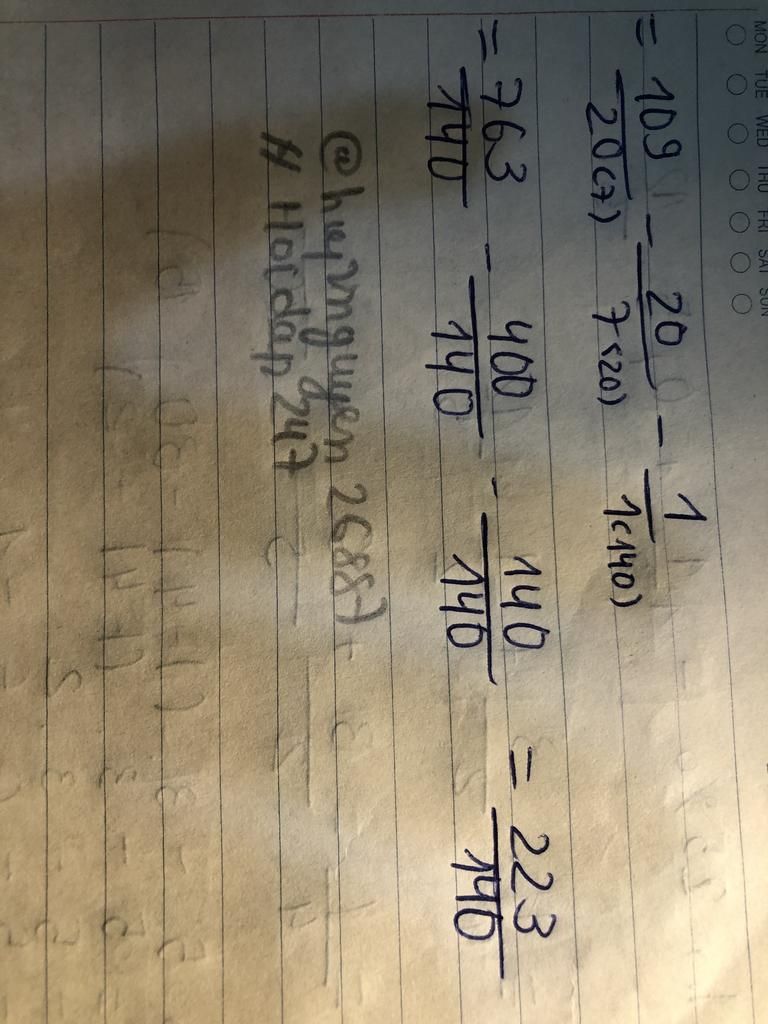 MON TUE WED THU FRI SAT SUN
= 109/20(7) - 20/7(20) - 1/1(140)
= 763/140 - 400/140 - 140/140 = 223/140
@huynguyen 26887
# Hoidap 247